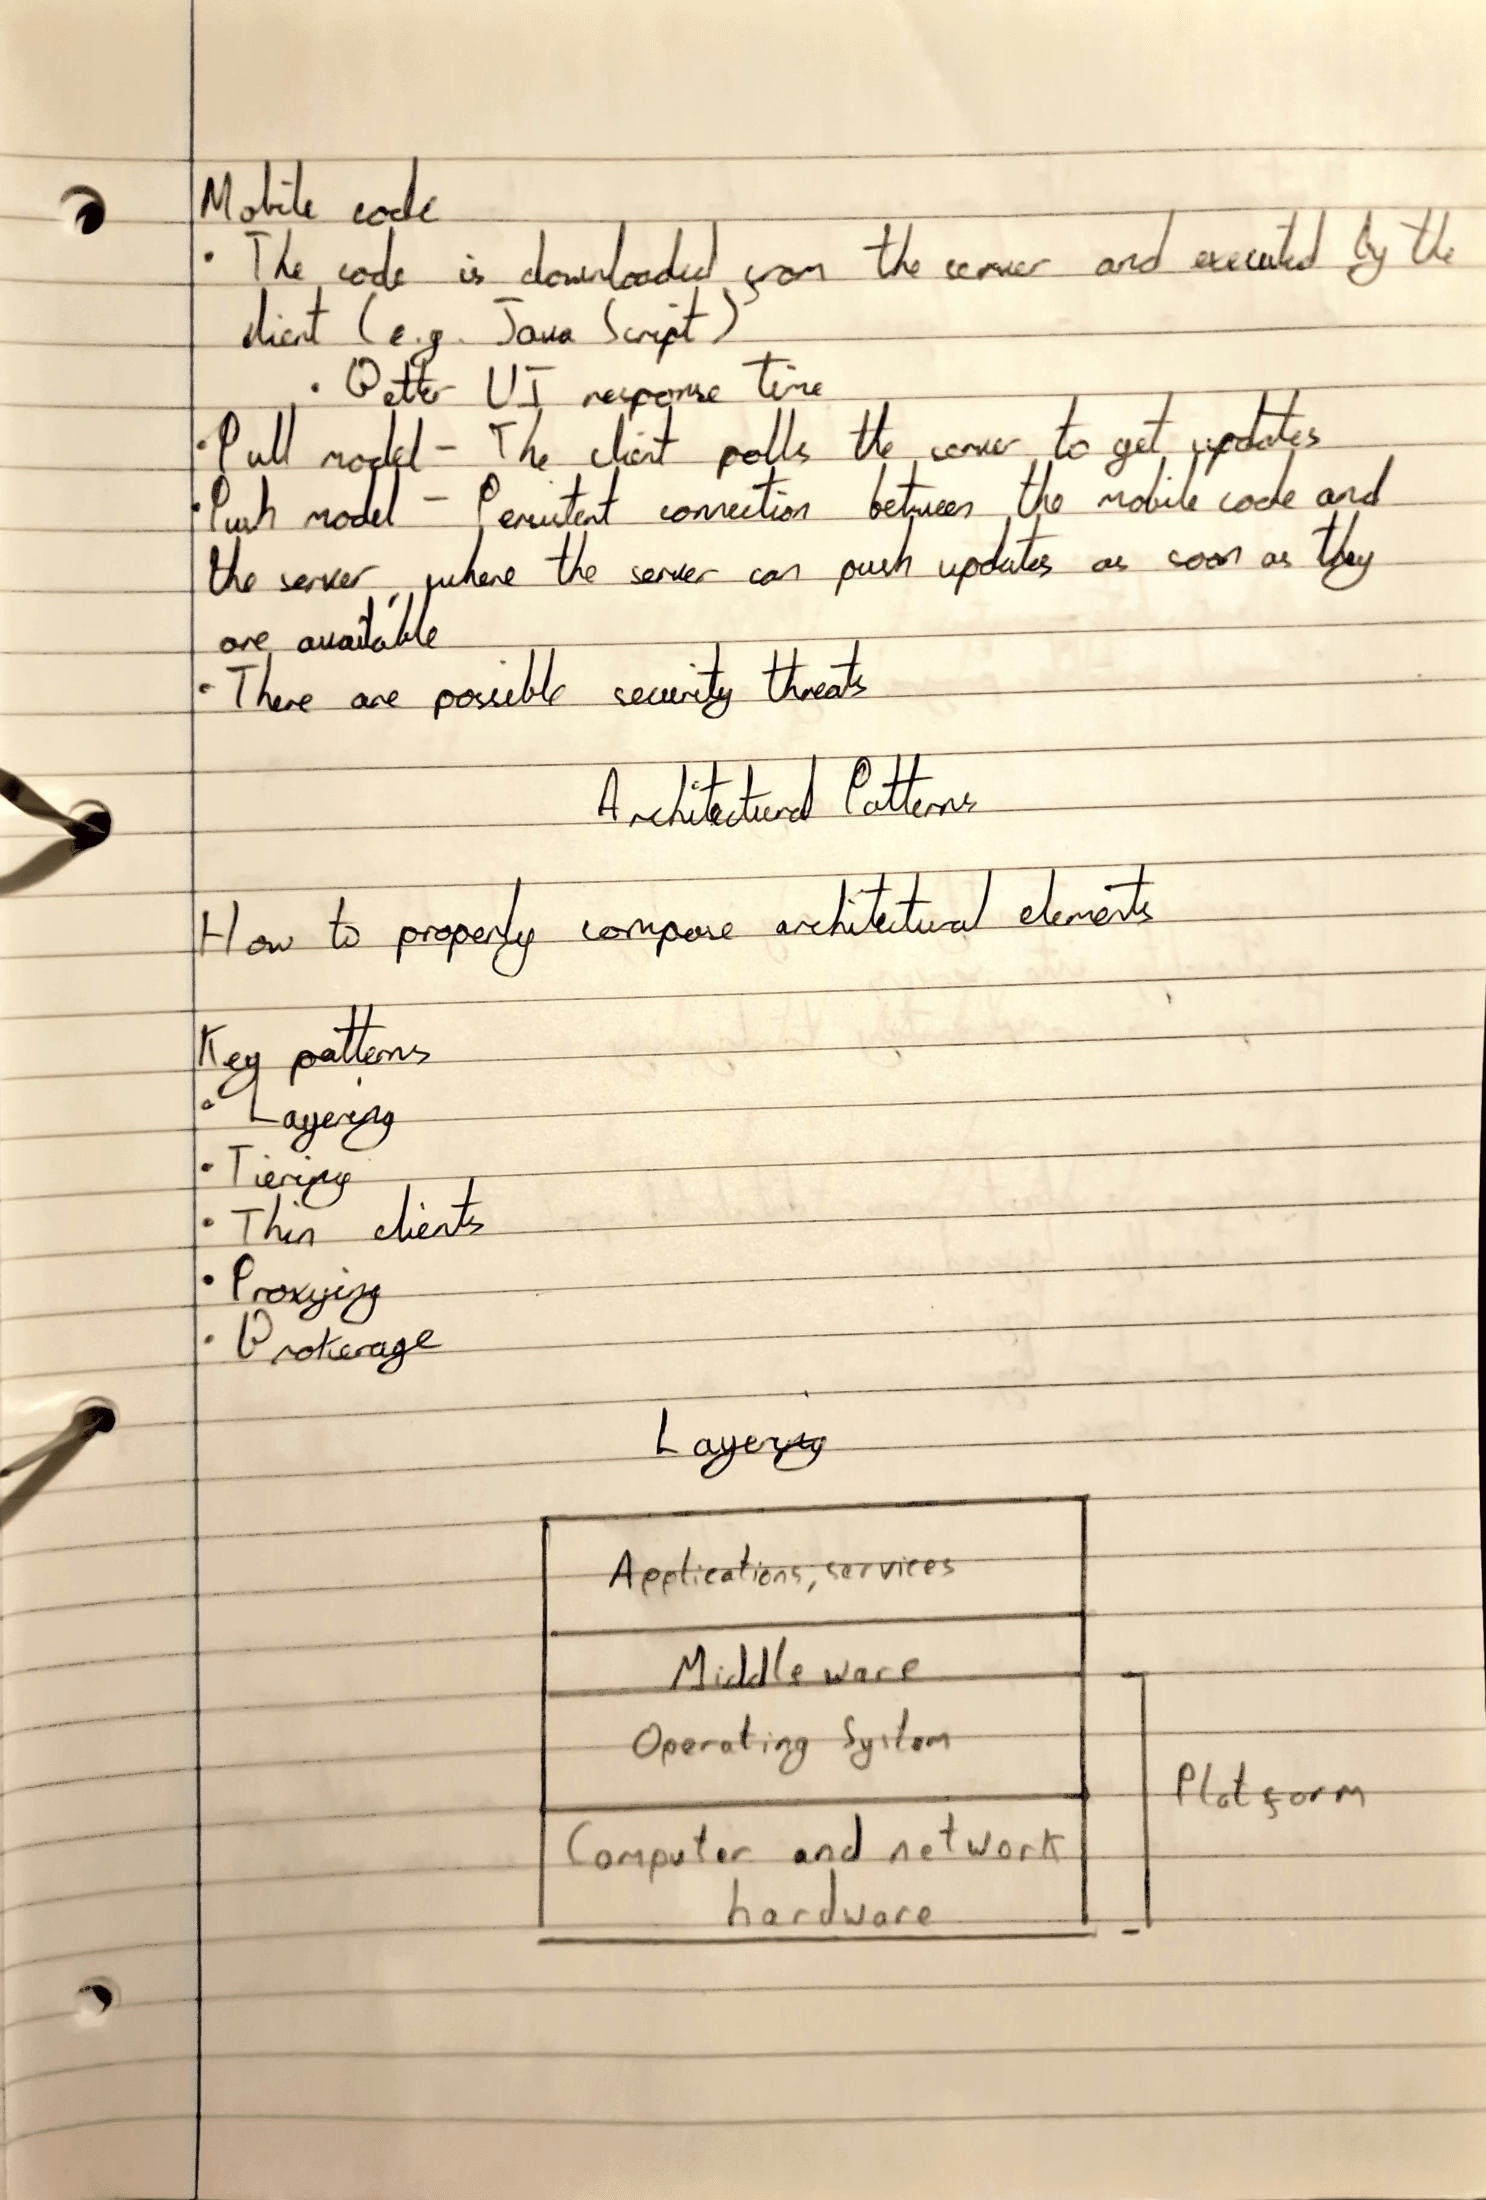 Mobile code
• The code is downloaded from the server and executed by the
client (e.g. Java Script)
• Better UI response time
• Pull model - The client polls the server to get updates
• Push model - Persistent connection between the mobile code and
the server, where the server can push updates as soon as they
are available
• There are possible security threats
Architectural Patterns
How to properly compose architectural elements
Key patterns
• Layering
• Tiering
• Thin clients
• Proxying
• Brokerage
Layering
Applications, services
Middleware
Operating System
Platform
Computer and network
hardware